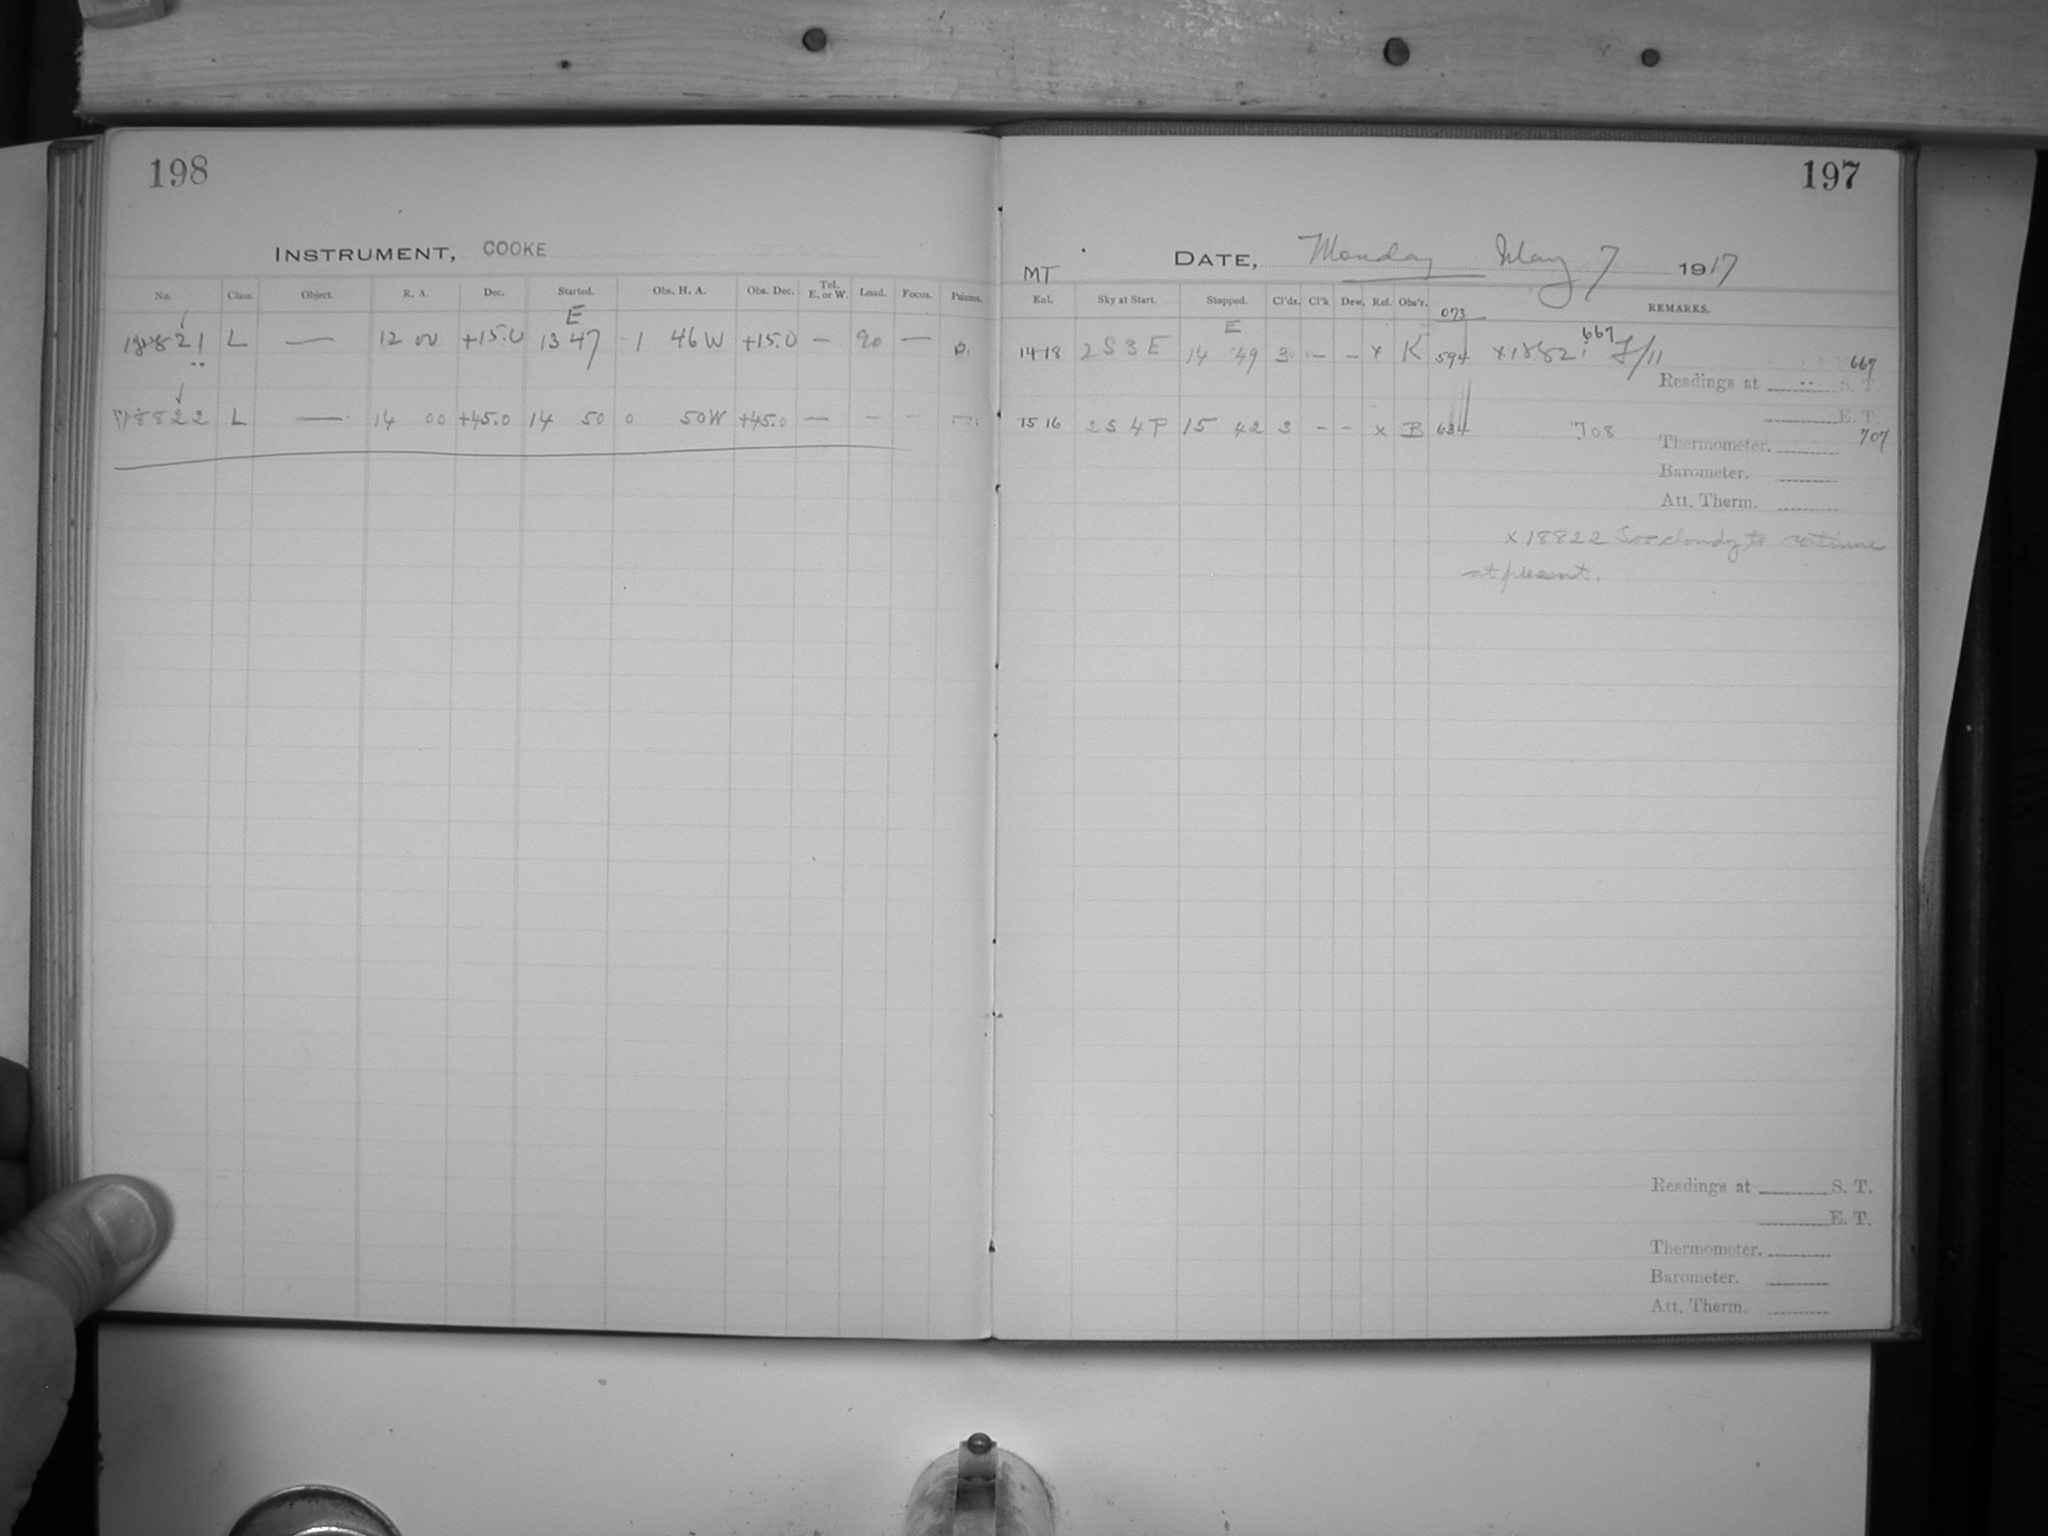 198
INSTRUMENT, COOKE
No. Class. Object. R. A. Dec. Started. Obs. H. A. Obs. Dec. Tel. E. or W. Load. Focus. Prisms.
E
18821 L — 12 00 +15.0 13 47 1 46 W +15.0 — 90 —
18822 L — 14 00 +45.0 14 50 0 50 W +45.0 — — —
197
DATE, Monday May 7 1917
MT
Enl. Sky at Start. Stopped. Cl'ds. Cl'k Dew. Ref. Obs'r. 073 REMARKS.
E
14 18 2 S 3 E 14 49 3 — — x K 594 x18821 667 J/11
667
Readings at S. T.
E. T.
15 16 2 S 4 P 15 42 3 — — x B 634 708
707
Thermometer.
Barometer.
Att. Therm.
x 18822 Too cloudy to continue
at present.
Readings at S. T.
E. T.
Thermometer.
Barometer.
Att. Therm.